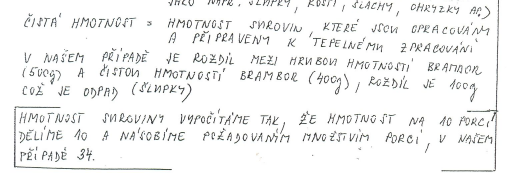 JAKO NAPŘ. SLUPKY, KOSTI, ŠLACHY, OHRYZKY AP.)
ČISTÁ HMOTNOST = HMOTNOST SUROVIN, KTERÉ JSOU OPRACOVÁNY
A PŘIPRAVENY K TEPELNÉMU ZPRACOVÁNÍ
V NAŠEM PŘÍPADĚ JE ROZDÍL MEZI HRUBOU HMOTNOSTÍ BRAMBOR
(500g) A ČISTOU HMOTNOSTÍ BRAMBOR (400g), ROZDÍL JE 100g
COŽ JE ODPAD (SLUPKY)
HMOTNOST SUROVINY VYPOČÍTÁME TAK, ŽE HMOTNOST NA 10 PORCÍ
DĚLÍME 10 A NÁSOBÍME POŽADOVANÝM MNOŽSTVÍM PORCÍ, V NAŠEM
PŘÍPADĚ 34.